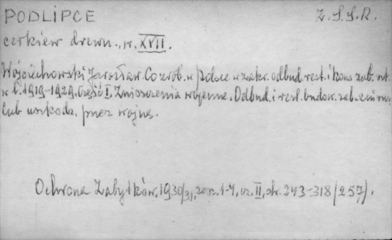 PODLIPCE Z.S.S.R.
cerkiew drewn., w. XVII.
Wojciechowski Jarosław. Co zrob. w Polsce w zakr. odbud. rest. i kons. zab. szt.
w l. 1919-1929. Część I. Zniszczenia wojenne. Odbud. i rest. budow. zab. zniszcz.
lub uszkodz. przez wojnę.
Ochrona Zabytków, 1930/31, zesz. 1-4, cz. II, str. 243-318 (257).